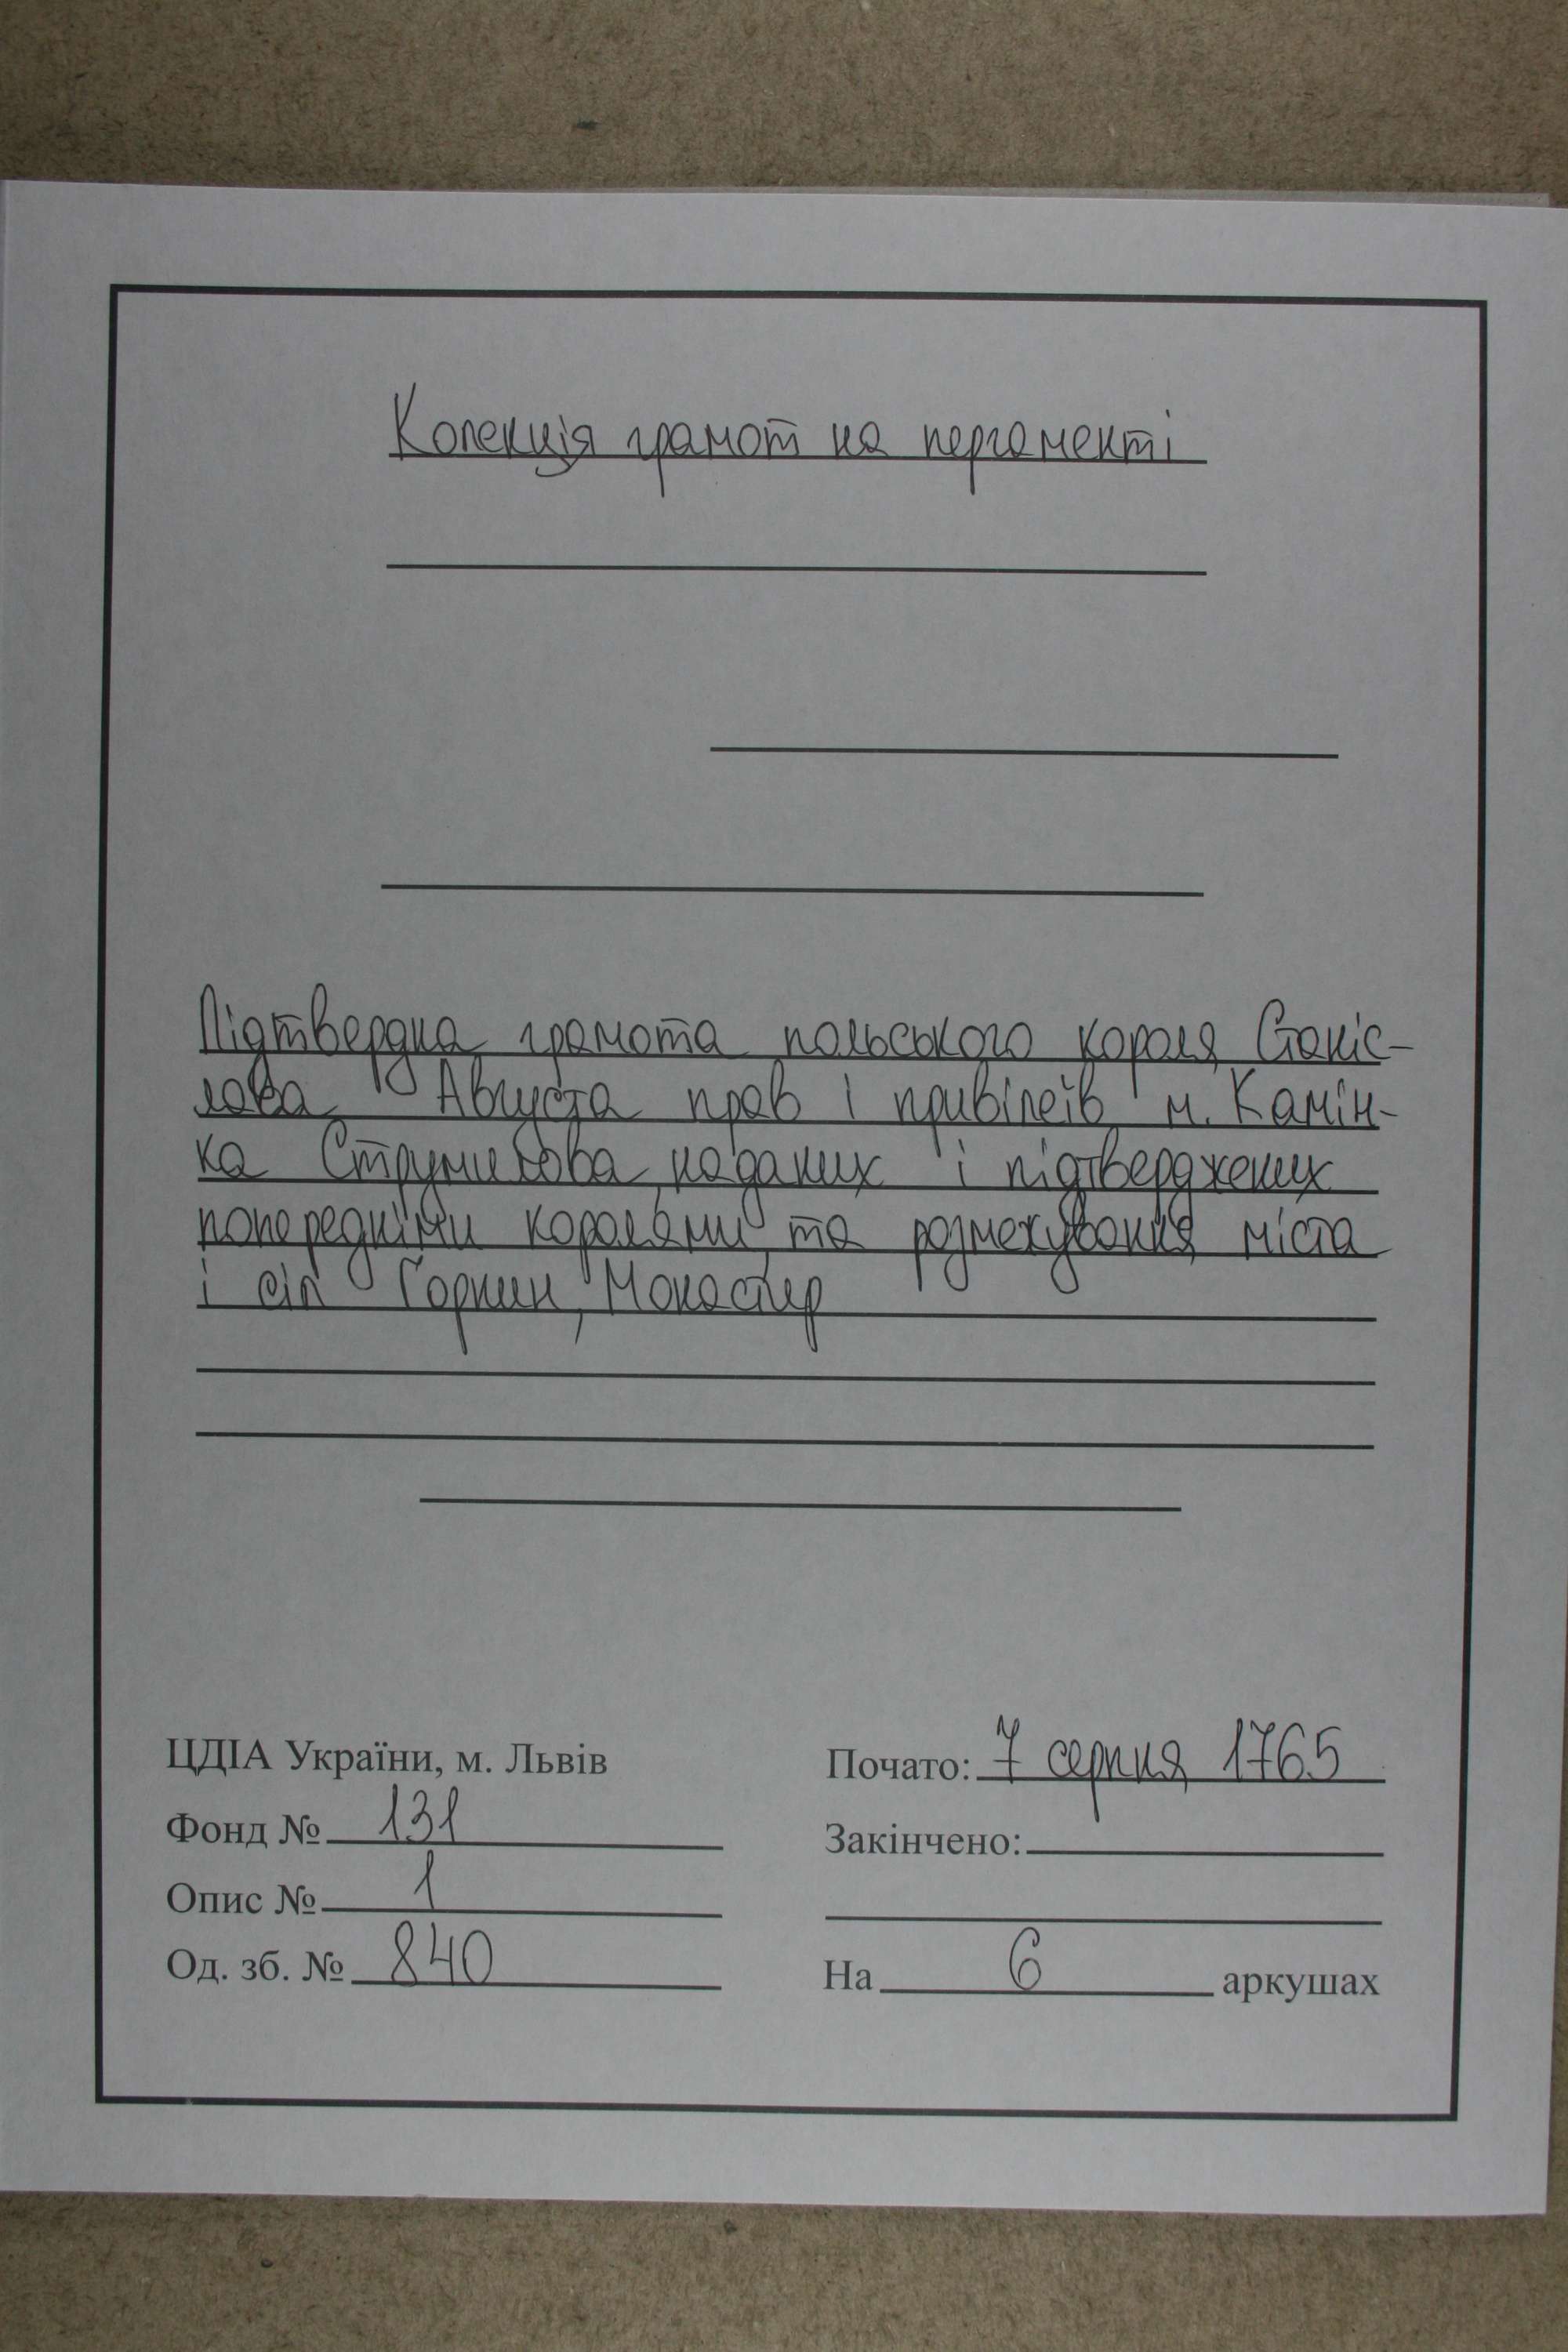 Колекція грамот на пергаменті
Підтвердна грамота польського короля Станіс-
лава Августа прав і привілеїв м. Камін-
ка Струмилова, наданих і підтверджених
попередніми королями, та розмежування міста
і сіл Горпин, Монастир
ЦДІА України, м. Львів
Почато: 7 серпня 1765
Фонд № 131
Закінчено:
Опис № 1
Од. зб. № 840
На 6 аркушах